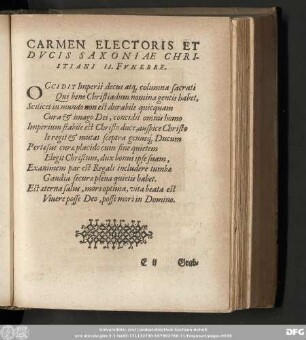 CARMEN ELECTORIS ET
DVCIS SAXONIAE CHRI-
STIANI II. FVNEBRE.
OCCIDIT Imperii decus atq, columna sacrati
Qui bene Christiadum nomina gentis habet,
Scilicet in mundo non est durabile quicquam
Cura & imago Dei, concidit omnis homo
Imperium stabile est Christo duce, auspice Christo
Is regit & mutat sceptra Ducum
Pertæsus curæ placido cum fine quietem
Elegit Christum, dux bonus ipse suam,
Exanimem par est Regali includere tumba
Gaudia secura plena quietis habet.
Est æterna salus, mors optima, vita beata est
Vivere posse Deo, posse mori in Domino.
E ii
Grab-